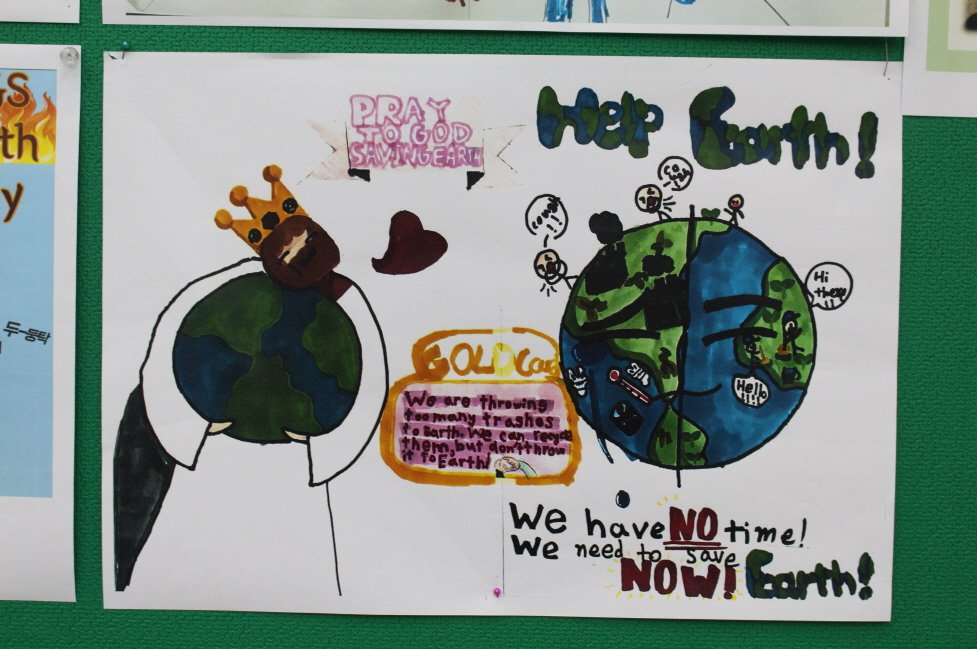 GS
th
y
두-둥탁
PRAY
TO GOD
SAVING EARTH
Help Earth!
cough
Hi
there
Hello
GOLD Card
We are throwing
too many trashes
to Earth. We can recycle
them, but don't throw
it to Earth!
We have NO time!
We need to save
NOW! Earth!